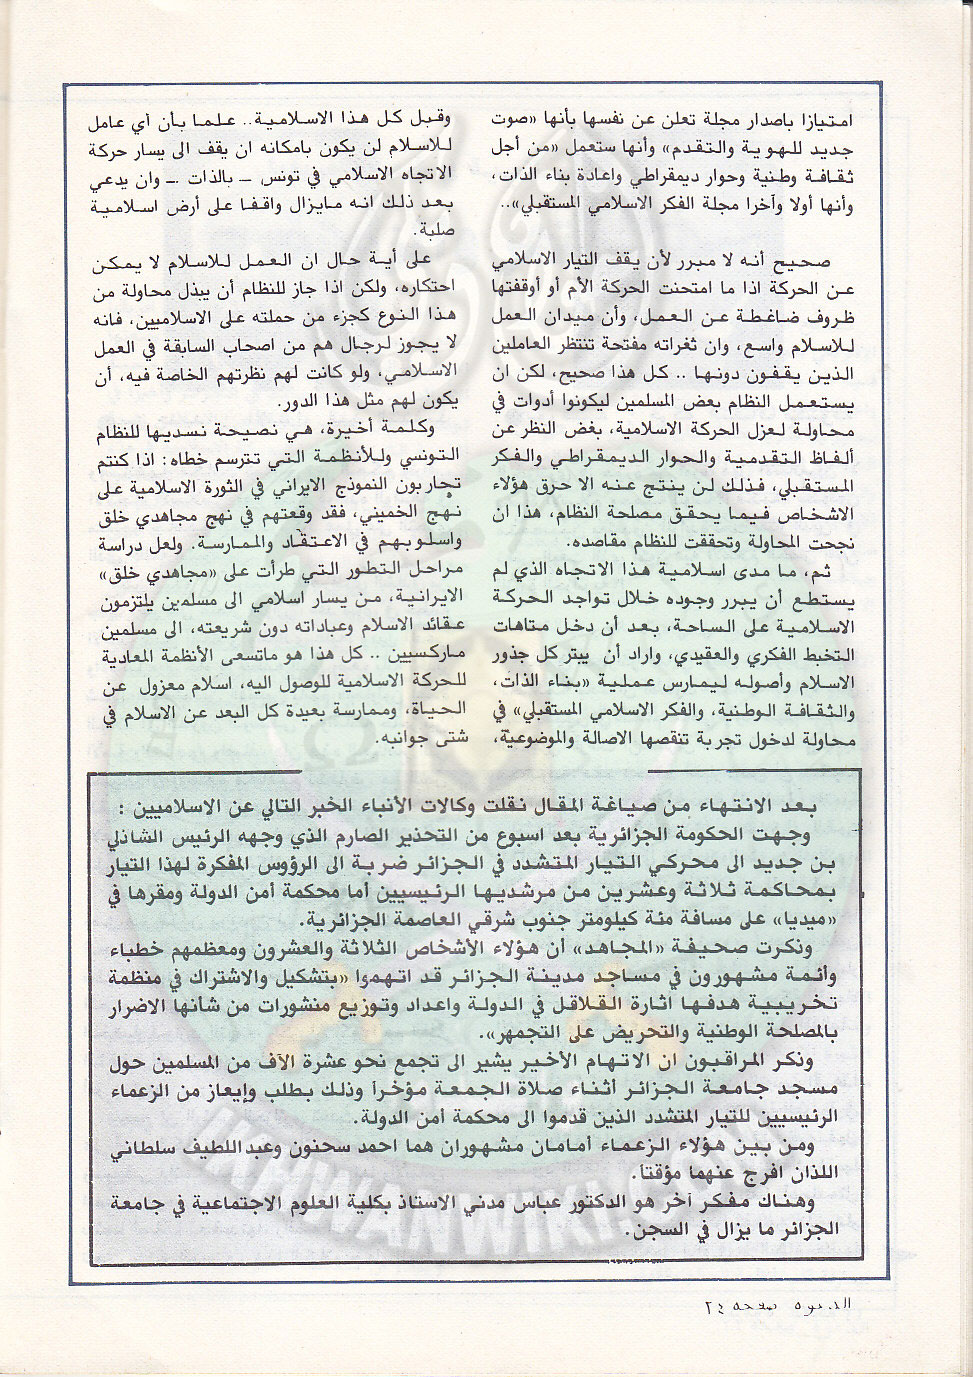 امتيازا باصدار مجلة تعلن عن نفسها بأنها «صوت
جديد للهوية والتقدم» وأنها ستعمل «من أجل
ثقافة وطنية وحوار ديمقراطي واعادة بناء الذات،
وأنها أولا وآخرا مجلة الفكر الاسلامي المستقبلي»..
صحيح أنه لا مبرر لأن يقف التيار الاسلامي
عن الحركة اذا ما امتحنت الحركة الأم أو أوقفتها
ظروف ضاغطة عن العمل، وأن ميدان العمل
للاسلام واسع، وان ثغراته مفتحة تنتظر العاملين
الذين يقفون دونها .. كل هذا صحيح، لكن ان
يستعمل النظام بعض المسلمين ليكونوا أدوات في
محاولة لعزل الحركة الاسلامية، بغض النظر عن
ألفاظ التقدمية والحوار الديمقراطي والفكر
المستقبلي، فذلك لن ينتج عنه الا حرق هؤلاء
الاشخاص فيما يحقق مصلحة النظام، هذا ان
نجحت المحاولة وتحققت للنظام مقاصده.
ثم، ما مدى اسلامية هذا الاتجاه الذي لم
يستطع أن يبرر وجوده خلال تواجد الحركة
الاسلامية على الساحة، بعد أن دخل متاهات
التخبط الفكري والعقيدي، واراد أن يبتر كل جذور
الاسلام وأصوله ليمارس عملية «بناء الذات،
والثقافة الوطنية، والفكر الاسلامي المستقبلي» في
محاولة لدخول تجربة تنقصها الاصالة والموضوعية،
وقبل كل هذا الاسلامية.. علما بأن أي عامل
للاسلام لن يكون بامكانه ان يقف الى يسار حركة
الاتجاه الاسلامي في تونس ــ بالذات ــ وان يدعي
بعد ذلك انه مايزال واقفا على أرض اسلامية
صلبة.
على أية حال ان العمل للاسلام لا يمكن
احتكاره، ولكن اذا جاز للنظام أن يبذل محاولة من
هذا النوع كجزء من حملته على الاسلاميين، فانه
لا يجوز لرجال هم من اصحاب السابقة في العمل
الاسلامي، ولو كانت لهم نظرتهم الخاصة فيه، أن
يكون لهم مثل هذا الدور.
وكلمة أخيرة، هي نصيحة نسديها للنظام
التونسي وللأنظمة التي تترسم خطاه: اذا كنتم
تحاربون النموذج الايراني في الثورة الاسلامية على
نهج الخميني، فقد وقعتهم في نهج مجاهدي خلق
واسلوبهم في الاعتقاد والممارسة. ولعل دراسة
مراحل التطور التي طرأت على «مجاهدي خلق»
الايرانية، من يسار اسلامي الى مسلمين يلتزمون
عقائد الاسلام وعباداته دون شريعته، الى مسلمين
ماركسيين .. كل هذا هو ماتسعى الأنظمة المعادية
للحركة الاسلامية للوصول اليه، اسلام معزول عن
الحياة، وممارسة بعيدة كل البعد عن الاسلام في
شتى جوانبه.
بعد الانتهاء من صياغة المقال نقلت وكالات الأنباء الخبر التالي عن الاسلاميين :
وجهت الحكومة الجزائرية بعد اسبوع من التحذير الصارم الذي وجهه الرئيس الشاذلي
بن جديد الى محركي التيار المتشدد في الجزائر ضربة الى الرؤوس المفكرة لهذا التيار
بمحاكمة ثلاثة وعشرين من مرشديها الرئيسيين أما محكمة أمن الدولة ومقرها في
«ميديا» على مسافة مئة كيلومتر جنوب شرقي العاصمة الجزائرية.
وذكرت صحيفة «المجاهد» أن هؤلاء الأشخاص الثلاثة والعشرون ومعظمهم خطباء
وائمة مشهورون في مساجد مدينة الجزائر قد اتهموا «بتشكيل والاشتراك في منظمة
تخريبية هدفها اثارة القلاقل في الدولة واعداد وتوزيع منشورات من شأنها الاضرار
بالمصلحة الوطنية والتحريض على التجمهر».
وذكر المراقبون ان الاتهام الأخير يشير الى تجمع نحو عشرة الآف من المسلمين حول
مسجد جامعة الجزائر أثناء صلاة الجمعة مؤخراً وذلك بطلب وإيعاز من الزعماء
الرئيسيين للتيار المتشدد الذين قدموا الى محكمة أمن الدولة.
ومن بين هؤلاء الزعماء أمامان مشهوران هما احمد سحنون وعبداللطيف سلطاني
اللذان افرج عنهما مؤقتاً.
وهناك مفكر آخر هو الدكتور عباس مدني الاستاذ بكلية العلوم الاجتماعية في جامعة
الجزائر ما يزال في السجن.
IKHWANWIKI
الدعوة صفحة ٢٤